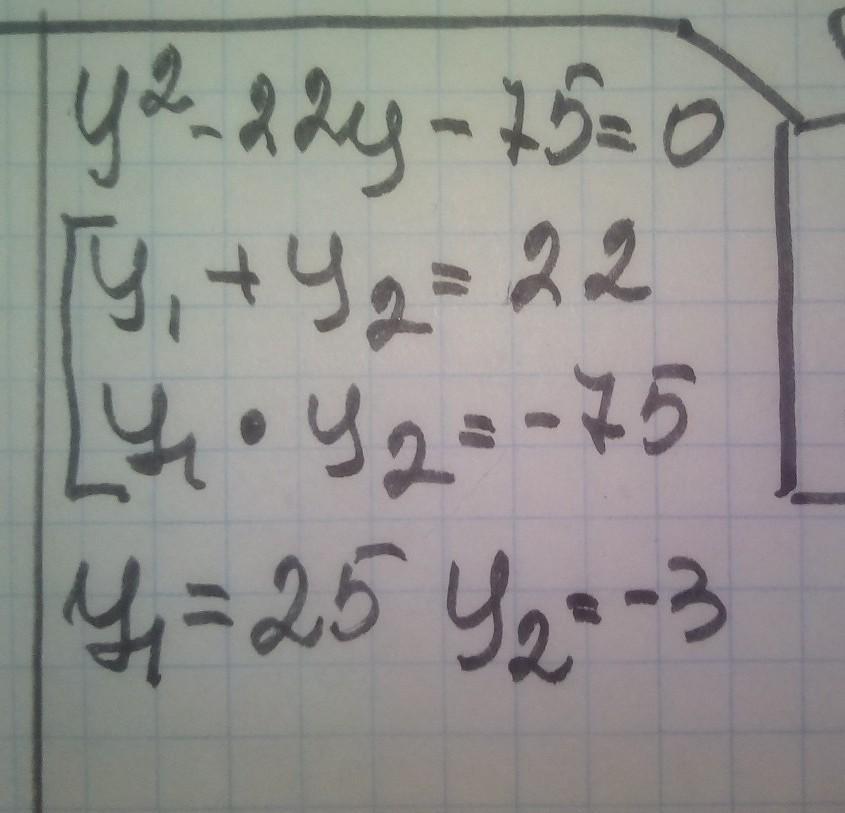 y² - 22y - 75 = 0
y₁ + y₂ = 22
y₁ • y₂ = -75
y₁ = 25 y₂ = -3